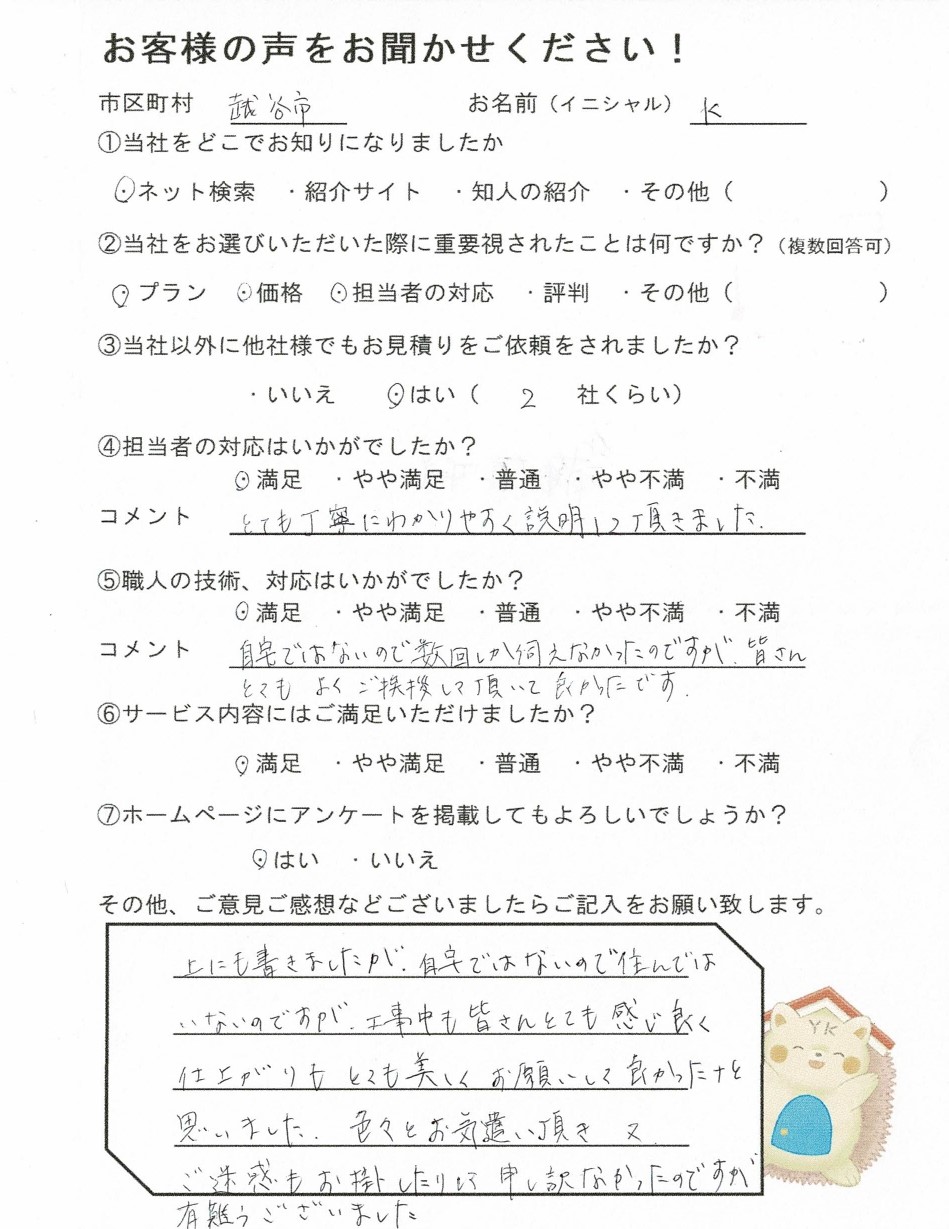 お客様の声をお聞かせください！
市区町村 越谷市 お名前（イニシャル） K
①当社をどこでお知りになりましたか
・ネット検索 ・紹介サイト ・知人の紹介 ・その他（ ）
②当社をお選びいただいた際に重要視されたことは何ですか？（複数回答可）
・プラン ・価格 ・担当者の対応 ・評判 ・その他（ ）
③当社以外に他社様でもお見積りをご依頼をされましたか？
・いいえ ・はい（ 2 社くらい）
④担当者の対応はいかがでしたか？
・満足 ・やや満足 ・普通 ・やや不満 ・不満
コメント とても丁寧にわかりやすく説明して頂きました.
⑤職人の技術、対応はいかがでしたか？
・満足 ・やや満足 ・普通 ・やや不満 ・不満
コメント 自宅ではないので数回しか伺えなかったのですが、皆さん
とても よく ご挨拶して頂いて 良かったです.
⑥サービス内容にはご満足いただけましたか？
・満足 ・やや満足 ・普通 ・やや不満 ・不満
⑦ホームページにアンケートを掲載してもよろしいでしょうか？
・はい ・いいえ
その他、ご意見ご感想などございましたらご記入をお願い致します。
上にも書きましたが、自宅ではないので住んでは
いないのですが、工事中も皆さんとても感じ良く
仕上がりも とても美しく お願いして 良かったナと
思いました. 色々とお気遣い頂き 又、
ご迷惑もお掛けしたりして 申し訳なかったのですが
有難うございました
YK